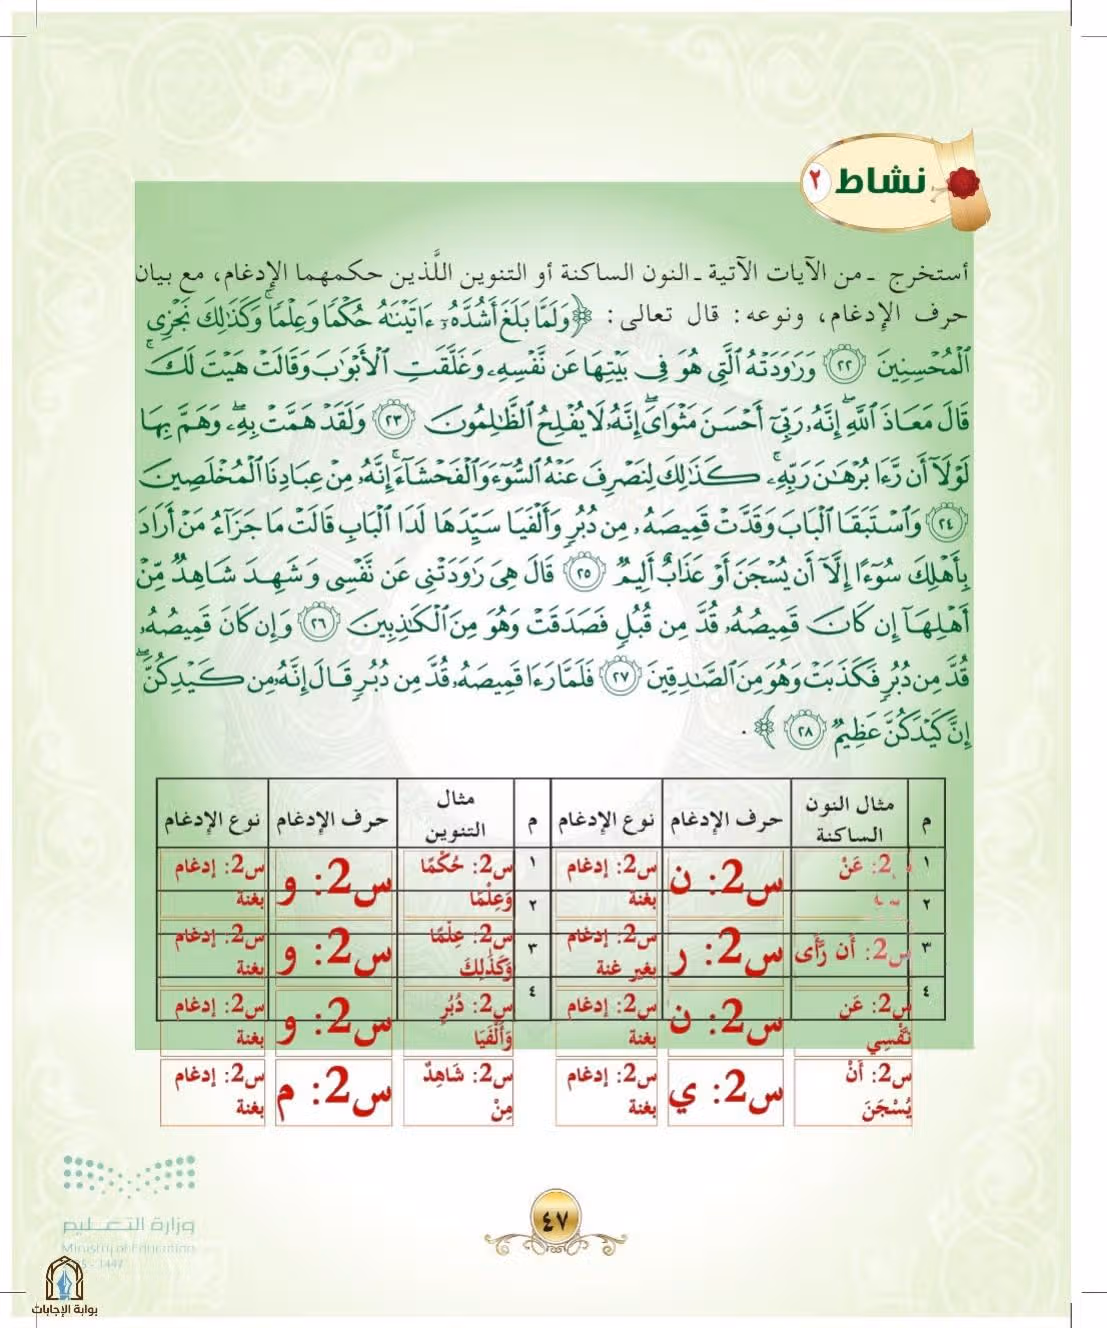 نشاط ٢
أستخرج ـ من الآيات الآتية ـ النون الساكنة أو التنوين اللَّذين حكمهما الإدغام، مع بيان
حرف الإدغام، ونوعه: قال تعالى: ﴿وَلَمَّا بَلَغَ أَشُدَّهُۥٓ ءَاتَيْنَٰهُ حُكْمًا وَعِلْمًا ۚ وَكَذَٰلِكَ نَجْزِى
ٱلْمُحْسِنِينَ ٢٢ وَرَٰوَدَتْهُ ٱلَّتِى هُوَ فِى بَيْتِهَا عَن نَّفْسِهِۦ وَغَلَّقَتِ ٱلْأَبْوَٰبَ وَقَالَتْ هَيْتَ لَكَ ۚ
قَالَ مَعَاذَ ٱللَّهِ ۖ إِنَّهُۥ رَبِّىٓ أَحْسَنَ مَثْوَاىَ ۖ إِنَّهُۥ لَا يُفْلِحُ ٱلظَّٰلِمُونَ ٢٣ وَلَقَدْ هَمَّتْ بِهِۦ ۖ وَهَمَّ بِهَا
لَوْلَآ أَن رَّءَا بُرْهَٰنَ رَبِّهِۦ ۚ كَذَٰلِكَ لِنَصْرِفَ عَنْهُ ٱلسُّوٓءَ وَٱلْفَحْشَآءَ ۚ إِنَّهُۥ مِنْ عِبَادِنَا ٱلْمُخْلَصِينَ
٢٤ وَٱسْتَبَقَا ٱلْبَابَ وَقَدَّتْ قَمِيصَهُۥ مِن دُبُرٍ وَأَلْفَيَا سَيِّدَهَا لَدَا ٱلْبَابِ ۚ قَالَتْ مَا جَزَآءُ مَنْ أَرَادَ
بِأَهْلِكَ سُوٓءًا إِلَّآ أَن يُسْجَنَ أَوْ عَذَابٌ أَلِيمٌ ٢٥ قَالَ هِىَ رَٰوَدَتْنِى عَن نَّفْسِى ۚ وَشَهِدَ شَاهِدٌ مِّنْ
أَهْلِهَآ إِن كَانَ قَمِيصُهُۥ قُدَّ مِن قُبُلٍ فَصَدَقَتْ وَهُوَ مِنَ ٱلْكَٰذِبِينَ ٢٦ وَإِن كَانَ قَمِيصُهُۥ
قُدَّ مِن دُبُرٍ فَكَذَبَتْ وَهُوَ مِنَ ٱلصَّٰدِقِينَ ٢٧ فَلَمَّا رَءَا قَمِيصَهُۥ قُدَّ مِن دُبُرٍ قَالَ إِنَّهُۥ مِن كَيْدِكُنَّ ۖ
إِنَّ كَيْدَكُنَّ عَظِيمٌ ٢٨ ﴾ .
م مثال النون الساكنة حرف الإدغام نوع الإدغام م مثال التنوين حرف الإدغام نوع الإدغام
١ 2: عَنْ س2: ن س2: إدغام بغنة ١ س2: حُكْمًا وَعِلْمًا س2: و س2: إدغام بغنة
٢ ٢
٣ س2: أن رَّأى س2: ر س2: إدغام بغير غنة ٣ س2: عِلْمًا وَكَذَٰلِكَ س2: و س2: إدغام بغنة
٤ س2: عَن نَّفْسِي س2: ن س2: إدغام بغنة ٤ س2: دُبُرٍ وَأَلْفَيَا س2: و س2: إدغام بغنة
س2: أَنْ يُسْجَنَ س2: ي س2: إدغام بغنة س2: شَاهِدٌ مِنْ س2: م س2: إدغام بغنة
٤٧
وزارة التعليم
Ministry of Education
1447
بوابة الإجابات